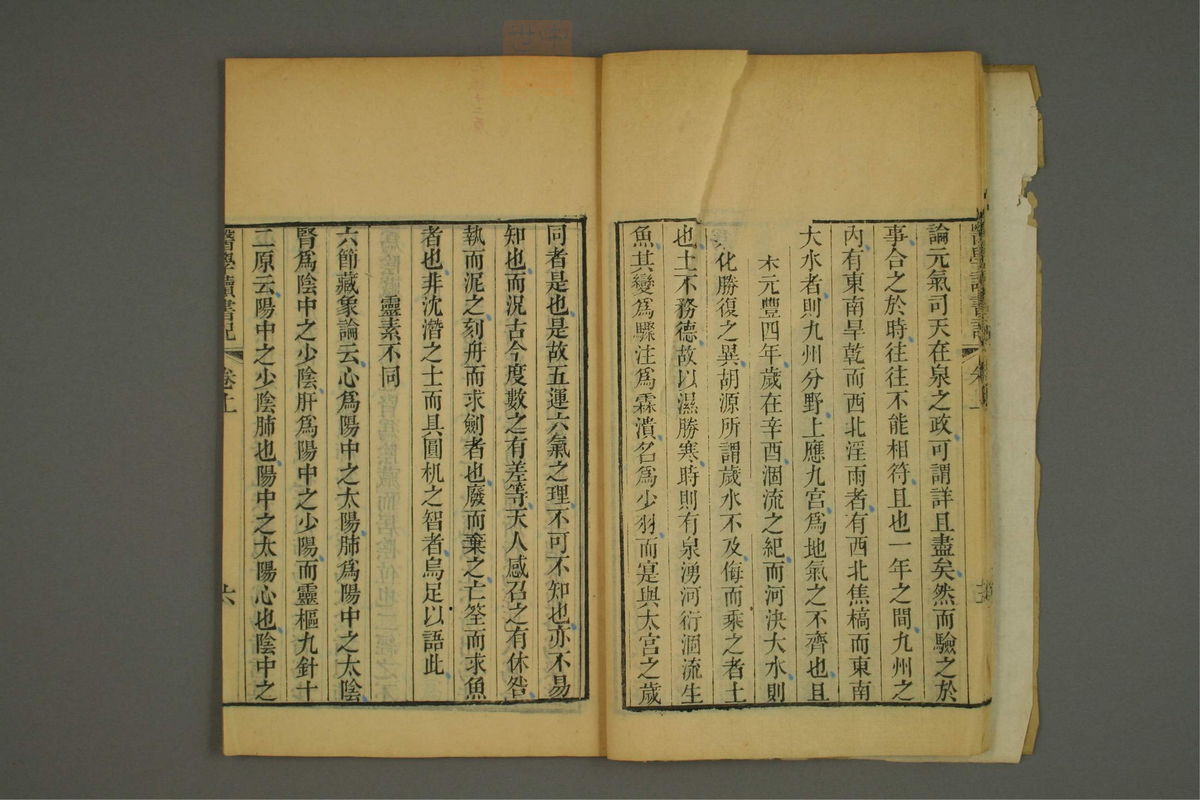 論元氣司天在泉之政可謂詳且盡矣然而驗之於
事合之於時往往不能相符且也一年之間九州之
內有東南旱乾而西北淫雨者有西北焦槁而東南
大水者則九州分野上應九宮為地氣之不齊也且
元豐四年歲在辛酉涸流之紀而河決大水則
化勝復之異胡源所謂歲水不及侮而乘之者土
也土不務德故以濕勝寒時則有泉湧河衍涸流生
魚其變為驟注為霖潰名為少羽而寔與太宮之歲
同者是也是故五運六氣之理不可不知也亦不易
知也而況古今度數之有差等天人感召之有休咎
執而泥之刻舟而求劍者也廢而棄之亡筌而求魚
者也非沈潛之士而具圓机之智者烏足以語此
靈素不同
六節藏象論云心為陽中之太陽肺為陽中之太陰
腎為陰中之少陰肝為陽中之少陽而靈樞九針十
二原云陽中之少陰肺也陽中之太陽心也陰中之
醫學讀書記
卷上
六